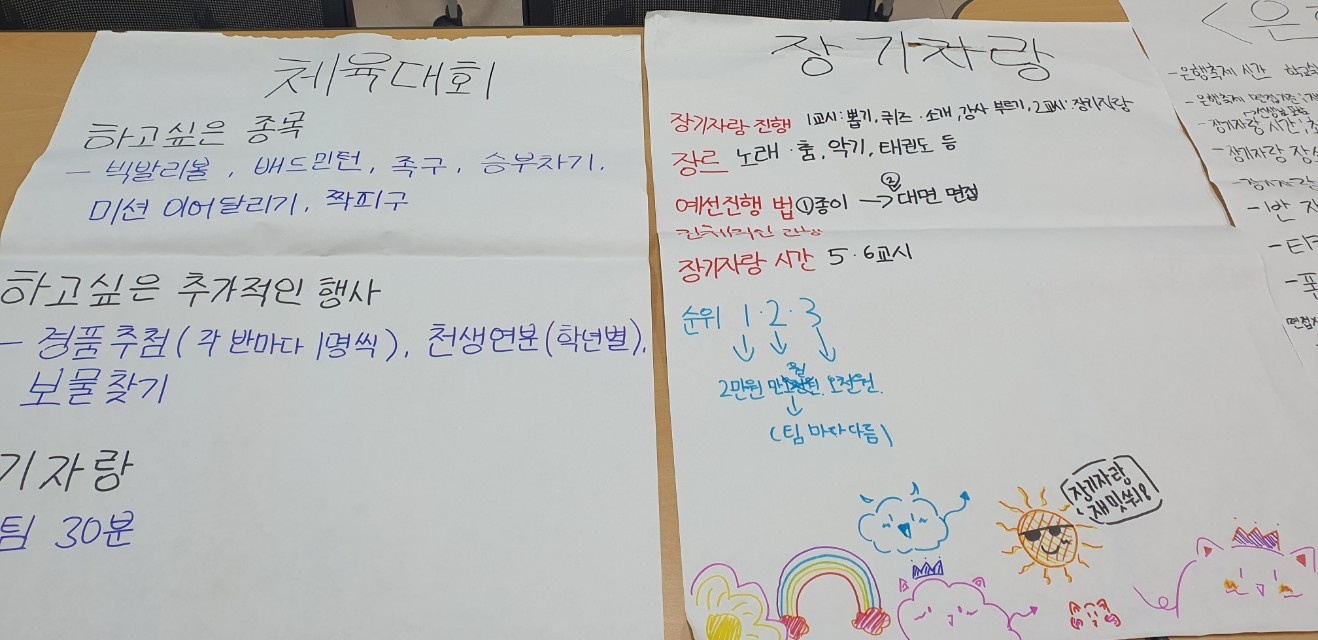 체육대회
하고싶은 종목
- 빅발리볼, 배드민턴, 족구, 승부차기,
미션 이어달리기, 짝피구
하고싶은 추가적인 행사
- 경품추첨(각 반마다 1명씩), 천생연분(학년별),
보물찾기
기자랑
팀 30분
장기자랑
장기자랑 진행 1교시: 뽑기, 퀴즈·소개, 강사 부르기, 2교시: 장기자랑
장르 노래·춤, 악기, 태권도 등
예선진행 법 ①종이 → ②대면 면접
장기자랑 시간 5·6교시
순위 1·2·3
2만원 만원 오천원.
(팀 마다 다름)
장기자랑
재밋쒀!
<은
- 은행축제 시간
- 은행축제 면접기준:
- 장기자랑 시간:
- 장기자랑
- 장기자랑
- 1반